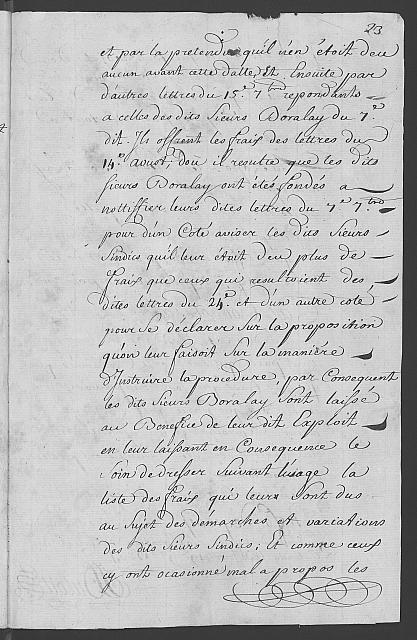 23
et par la pretendu qu'il n'en étoit deu
aucun avant cette datte, Et Ensuite par
d'autres lettres du 15.e 7.bre repondants
a celles des dits Sieurs Boralay du 7.e
dit. Ils offrent les frais des lettres du
14.e aoust, dou il resulte que les dits
Sieurs Boralay ont étés fondés a
nottiffier leurs dites lettres du 7.e 7.bre
pour d'un Coté aviser les dits Sieurs
Sindics qu'il leur étoit deu plus de
fraix que ceux qui resultoient des
dites lettres du 24.e et d'un autre coté
pour se déclarer sur la proposition
qu'on leur faisoit sur la maniére
d'Instruire la procedure, par Consequent
les dits Sieurs Boralay sont laissé
au Benefice de leur dit Exploit
en leur laissant en Consequence le
soin de dresser suivant l'usage la
liste des fraix qui leurs sont dus
au sujet des démarches et variations
des dits Sieurs Sindics; Et comme ceux
cy ont ocasionné mal a propos les